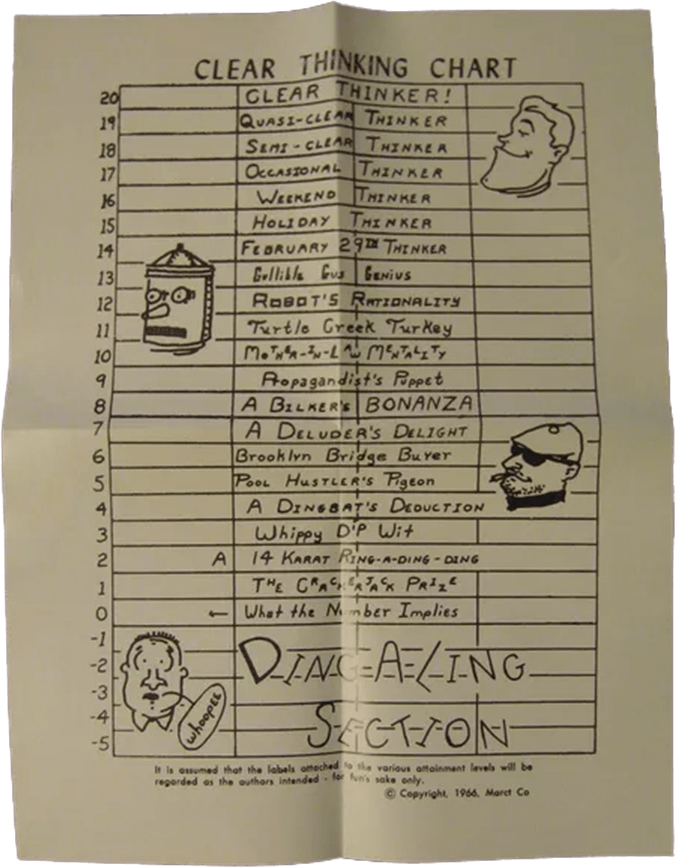 CLEAR THINKING CHART
20 CLEAR THINKER!
19 QUASI-CLEAR THINKER
18 SEMI-CLEAR THINKER
17 OCCASIONAL THINKER
16 WEEKEND THINKER
15 HOLIDAY THINKER
14 FEBRUARY 29TH THINKER
13 Gullible Gus Genius
12 ROBOT'S RATIONALITY
11 Turtle Creek Turkey
10 MOTHER-IN-LAW MENTALITY
9 Propagandist's Puppet
8 A BILKER'S BONANZA
7 A DELUDER'S DELIGHT
6 Brooklyn Bridge Buyer
5 POOL HUSTLER'S Pigeon
4 A DINGBAT'S DEDUCTION
3 Whippy D'P Wit
2 A 14 KARAT RING-A-DING-DING
1 THE CRACKERJACK PRIZE
0 ← What the Number Implies
-1
-2 DING-A-LING
-3
-4 SECTION
-5
Whoopee
It is assumed that the labels attached to the various attainment levels will be
regarded as the authors intended - for fun's sake only.
© Copyright, 1966, Marct Co